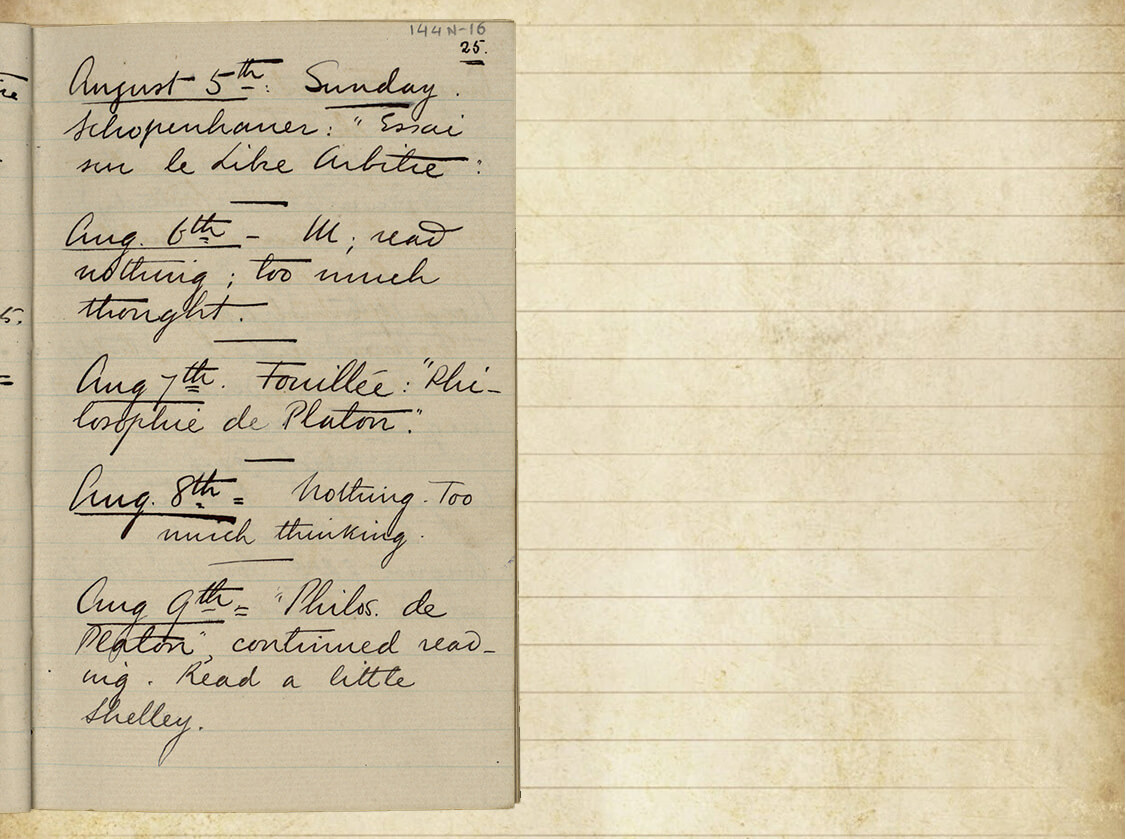 144N-16
25.
August 5th: Sunday.
Schopenhauer: "Essai
sur le Libre Arbitre":
Aug. 6th - Ill; read
nothing; too much
thought.
Aug 7th. Fouillée: "Phi-
losophie de Platon".
Aug. 8th = Nothing. Too
much thinking.
Aug 9th = "Philos. de
Platon", continued read-
ing. Read a little
Shelley.